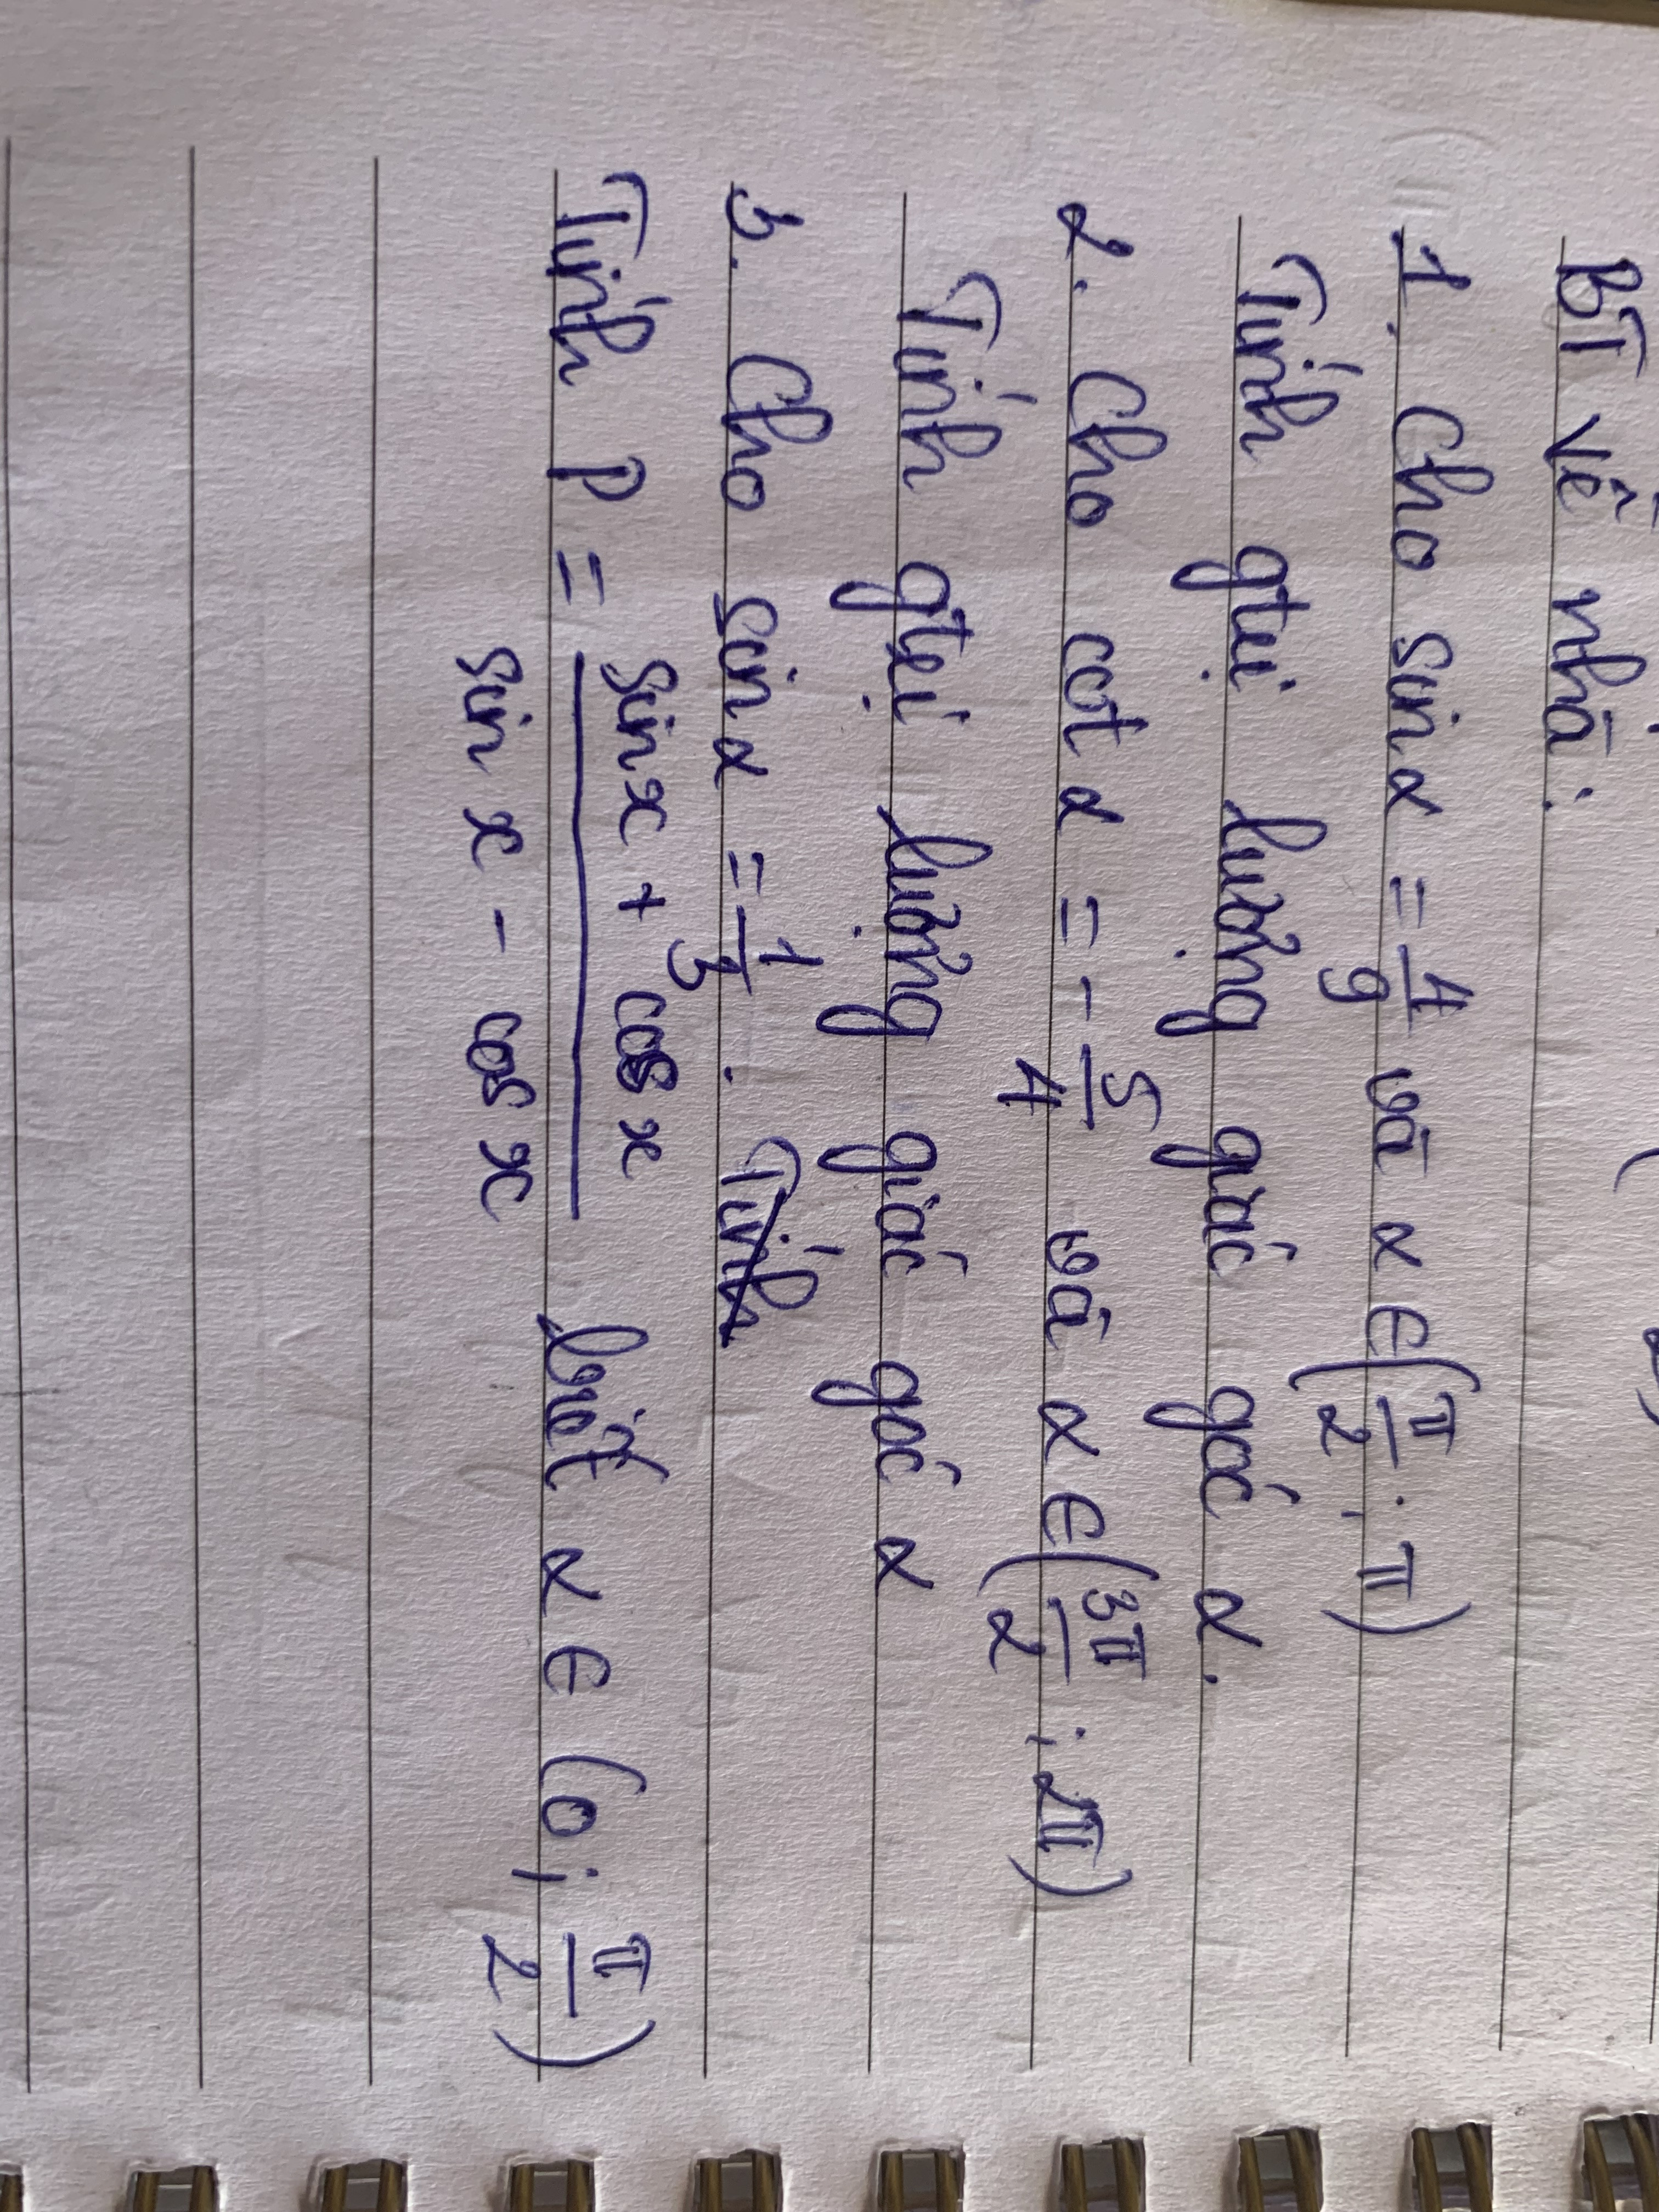 BT về nhà:
1. Cho sin α = 4/9 và α ∈ (π/2 ; π)
Tính gtrị lượng giác góc α.
2. Cho cot α = - 5/4 và α ∈ (3π/2 ; 2π)
Tính gtrị lượng giác góc α
3. Cho sin α = 1/3 . Tính
Tính P = (sin x + cos x)/(sin x - cos x) biết α ∈ (0 ; π/2)